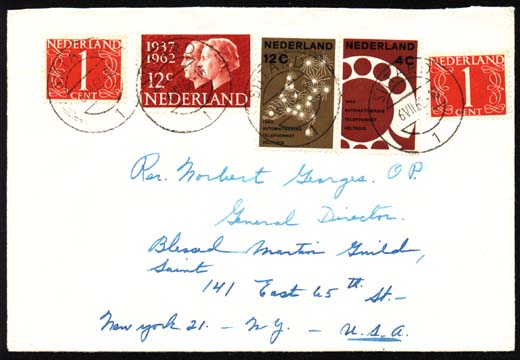 NEDERLAND
1
CENT
1937
1962
12c
NEDERLAND
NEDERLAND
12c
1962
AUTOMATISERING
TELEFOONNET
VOLTOOID
NEDERLAND
4c
1962
AUTOMATISERING
TELEFOONNET
VOLTOOID
NEDERLAND
1
CENT
Rev. Norbert Georges. O.P.
General Director.
Blessed Martin Guild,
Saint
141 East 65th St.-
New York 21. - N.Y. - U.S.A.